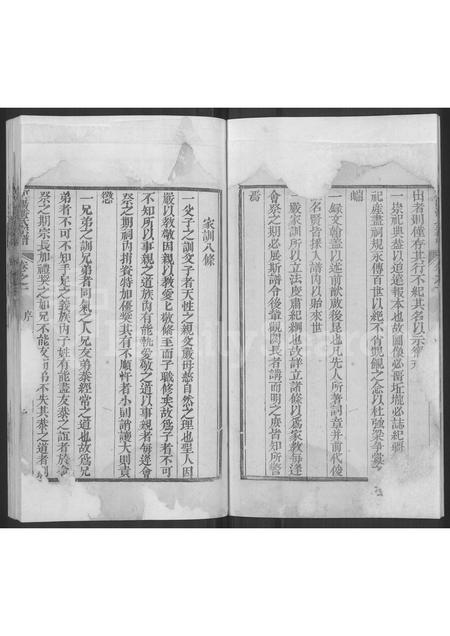 出者則僅存其行不紀其名以示
一崇祀典蓋以追遠報本也故圖像必晝坵壠必誌紀疆
祀產畫祠規永傳百世以絕不肖覬覦之念以杜強梁爭
端
一錄文翰蓋以述前猷啟後昆也凡先人所著詞章并前代後
名賢皆採入譜內以貽來世
嚴家訓所以立法度肅紀綱也故詳立諸條以為家教每逢
會祭之期必展斯譜令後輩觀聞長者講而明之庶皆知所警
焉
家訓八條
一父子之訓父子者天性之親父嚴母慈自然之理也聖人因
嚴以教敬因親以教愛匕敬修至而子職修矣故為子者不可
不知所以事親之道族內有能執愛敬之道以事親者每逢會
祭之期祠內捐資特加優獎其有不順忤者小則誚讓大則責
懲
一兄弟之訓兄弟者同氣之人兄友弟恭經常之道也故為兄
弟者不可不知手足之義族內子姓有能盡友恭之誼者於
祭之期宗長加禮獎之如兄不能友弟不失其恭之道者
卷之一 序